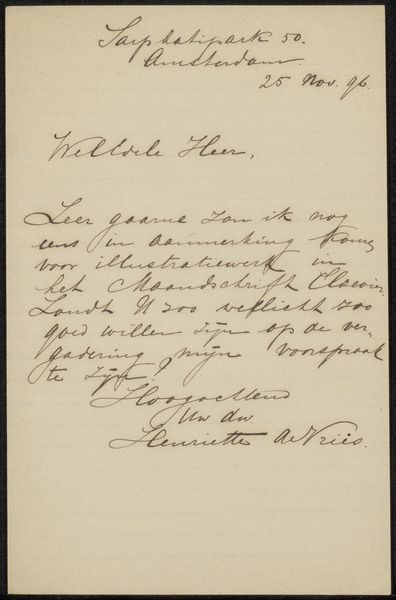 Sarphatipark 50.
Amsterdam.
25 Nov. 96.
WelEdele Heer,
Zeer gaarne zou ik nog
eens in aanmerking komen
voor illustratiewerk in
het Maandschrift Elsevier.
Zoudt U zoo wellicht zoo
goed willen zijn op de ver-
gadering mijn voorspraak
te zijn?
Hoogachtend
Uw dw
Henriette de Vries.